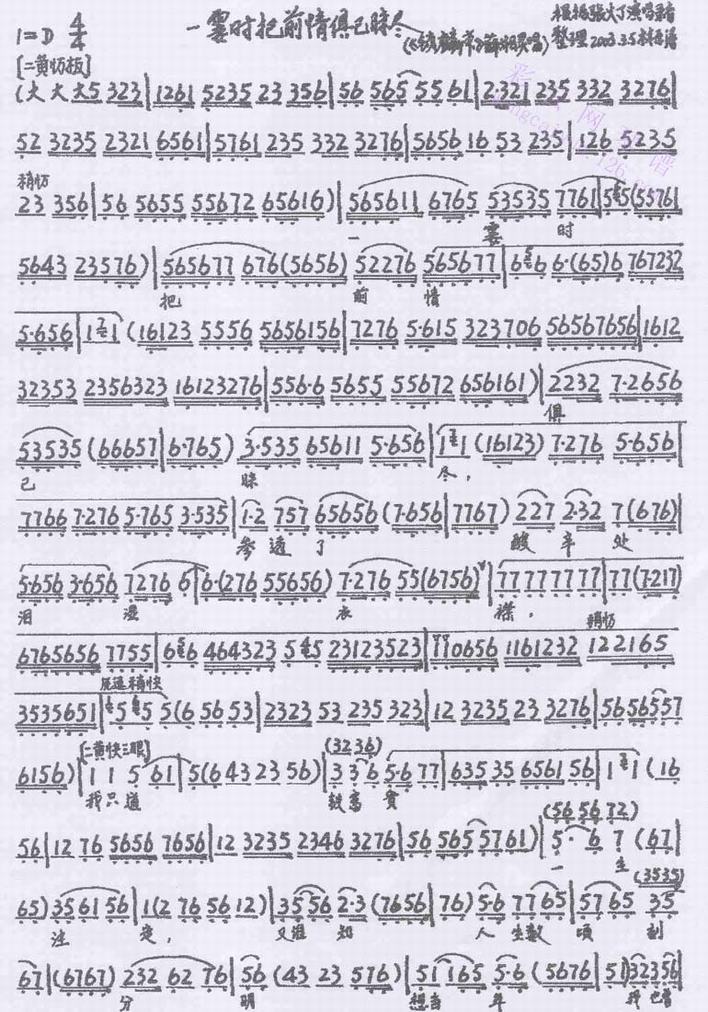 1=D 4/4 一霎时把前情俱已昧尽
(《锁麟囊》薛湘灵唱)
根据张火丁演唱录音
整理 2003.3.5
[二黄慢板]
(大 大 大5 323|1261 5235 23 356|56 565 55 61|2·321 235 332 3276|
52 3235 2321 6561|5761 235 332 3276|5656 16 53 235|126 5235
稍慢
23 356|56 5655 55672 65616)|565611 6765 53535 7761|5 5(55761
一 霎 时
5643 23576)|565677 676(5656) 52276 565677|6 6 6·(65)6 767232
把 前 情
5·656|1 1 (16123 5556 5656156|7276 5·615 323706 56567656|1612
32353 2356323 16123276|556·6 5655 55672 656161)|2232 7·2656
俱
53535 (66657|6·765) 3·535 65611 5·656|1 1 (16123) 7·276 5·656|
已 昧 尽,
7766 7·276 5·765 3·535|1·2 757 65656 (7·656|7767) 227 2·32 7(676)|
参 透 了 酸 辛 处
5·656 3·656 7276 6|6·(276 55656) 7·276 55(6756)|77777777|77(7·217)
泪 湿 衣 襟,
稍慢
6765656 7755|6 6 464323 5 5 23123523|110656 1161232 122165
3535651|5 5 5(6 56 53|2323 53 235 323|12 3235 23 3276|56 56557
6156)|[二黄快三眼] 1 1 5 61|5(6 43 23 56)|(3236) 3 3 6 5·6 77|635 35 6561 56|1 1 (16
我只道 铁富贵
56|12 76 5656 7656|12 3235 2346 3276|56 565 5761)|(56 56 72) 5· 6 7 (67|
一 生
65) 3561 56|1(2 76 56 12)|3556 2·3 (7656|76) 5·6 7765|5765 (3535) 35
注 定, 又谁 知 人 生数 顷 刻
67|(6767) 232 62 76|56 (43 23 576)|51 165 5·6 (5676|51)32356|
分 明 想当 年 我也曾